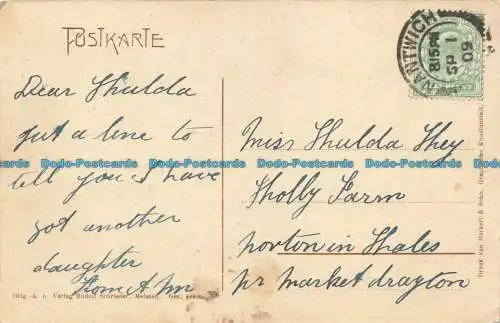 POSTKARTE
NANTWICH
8.15PM
SP 1
09
Dear Shulda
Jut a line to
tell you I have
got another
daughter
From A
Miss Shulda Shey
Sholly Farm
norton in Shales
nr market drayton
Orig.-A. u. Verlag Rudolf Schrieder, Meissen. Ges. gesch.
Druck von Markert & Sohn, Graphische Kunstanstalt,
Dodo-Postcards Dodo-Postcards Dodo-Postcards Dodo-Postcards Dodo-Postcards